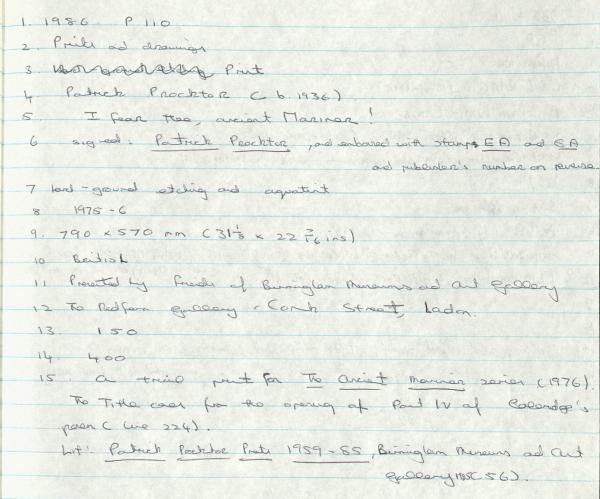 1. 1986 P 110
2. Prints ad drawings
3. Print
4 Patrick Procktor (b. 1936)
5 I fear thee, ancient Mariner!
6 signed: Patrick Procktor, and embossed with stamps EA and SA
and publisher's number on reverse
7 hard-ground etching and aquatint
8 1975-6
9. 790 x 570 mm (31 1/8 x 22 7/16 ins)
10 British
11 Presented by Friends of Birmingham Museums ad Art Gallery
12 The Redfern Gallery, Cork Street, London.
13. 150
14. 400
15 A trial print for The Ancient Mariner series (1976).
The Title comes from the opening of Part IV of Coleridge's
poem (line 224).
Lit: Patrick Procktor Prints 1959-85, Birmingham Museums ad Art
Gallery 1985 (56).